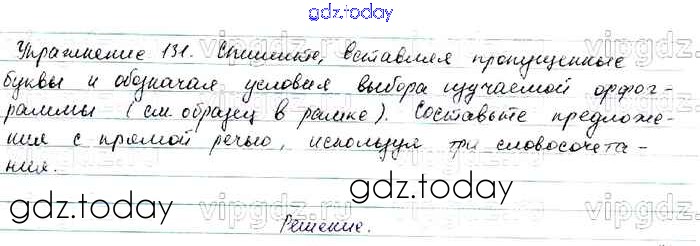 gdz.today
Упражнение 131. Спишите, вставляя пропущенные
буквы и обозначая условия выбора изучаемой орфог-
раммы (см. образец в рамке). Составьте предложе-
ния с прямой речью, используя три словосочета-
ния.
gdz.today
gdz.today
Решение.
vipgdz.com